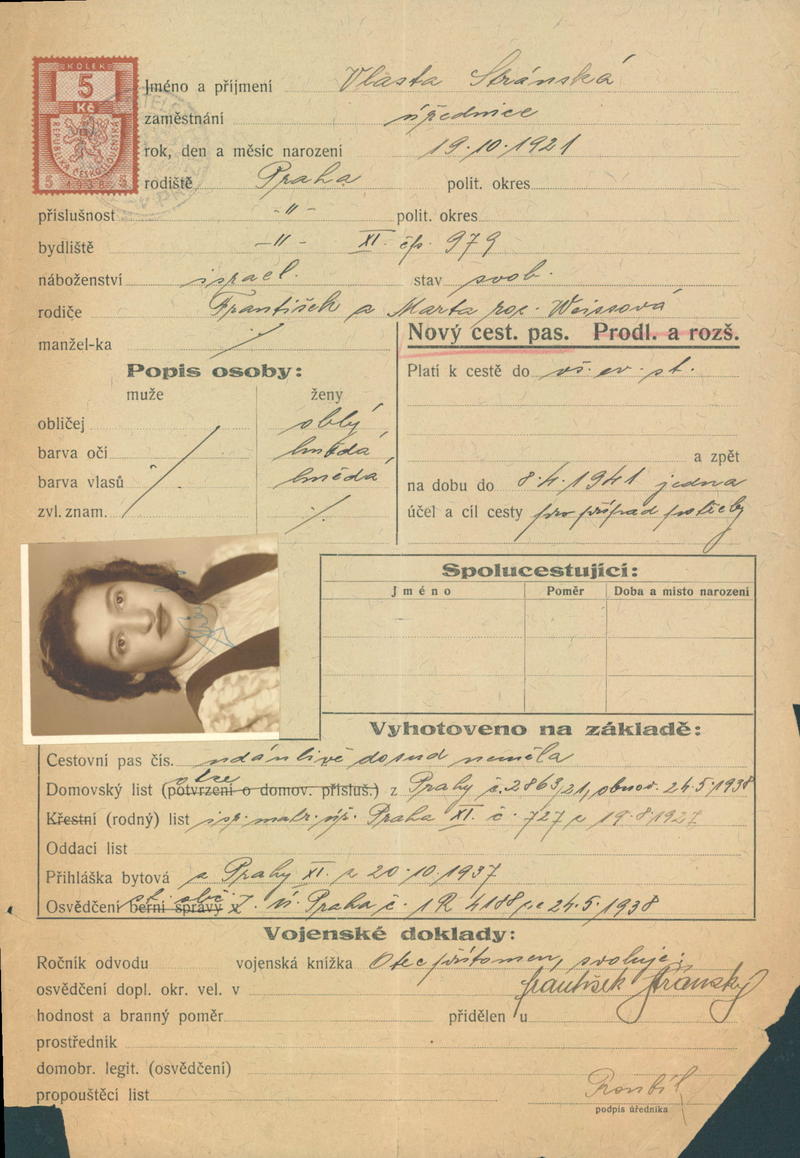 KOLEK
5
Kč
REPUBLIKA ČESKOSLOVENSKÁ
5 1938 5
Jméno a příjmení Vlasta Stránská
zaměstnání úřednice
rok, den a měsíc narození 19.10.1921
rodiště Praha polit. okres
příslušnost -"- polit. okres
bydliště -"- XI. čp. 979
náboženství israel. stav svob.
rodiče František a Marta roz. Weissová
manžel-ka ⁒
Nový cest. pas. Prodl. a rozš.
Popis osoby:
muže ženy
obličej oblý
barva očí hnědá
barva vlasů hnědá
zvl. znam. ⁒
Platí k cestě do vš. ev. st.
a zpět
na dobu do 8.4.1941 jedna
účel a cíl cesty pro případ potřeby
Spolucestující:
Jméno Poměr Doba a místo narození
Vyhotoveno na základě:
Cestovní pas čís. udánlivě dosud neměla
otce
Domovský list (potvrzení o domov. přísluš.) z Prahy č. 2863/21, obnov. 24.5.1938
Křestní (rodný) list isr. matr. úř. Praha XI. č. 727 z 19.8.1927
Oddací list
Přihláška bytová z Prahy XI. z 20.10.1937
st. obč.
Osvědčení berní správy z Z. ú. Praha č. 1R 4188 ze 24.5.1938
Vojenské doklady:
Ročník odvodu vojenská knížka Otec přítomen, svoluje:
osvědčení dopl. okr. vel. v František Stránský
hodnost a branný poměr přidělen u
prostředník
domobr. legit. (osvědčení)
propouštěcí list
podpis úředníka